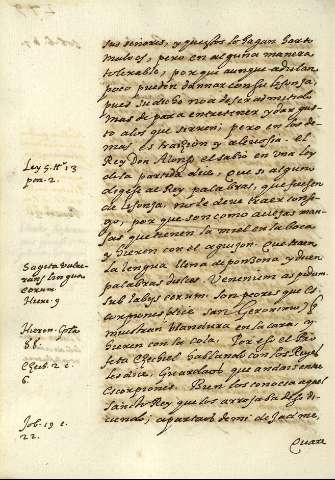 sus señores, y questos lo hagan
mulos, pero en alguna manera
tolerable, porque aunque adulan
poco pueden dañar con su lisonja,
pues su dicho no a de ser admitido
mas de para entretener y dar gus
to a los que sirven; pero en los de
mas es traiçion y alevosia. el
Rey Don Alonso el sabio en una ley
de la partida dice, Que si alguno
dixese al Rey palabras, que fuesen
de lisonja, no le deve traer consi
go, porque son como avejas man
sas que tienen la miel en la boca
y hieren con el aguijon. Que traen
la lengua llena de ponçoña, y dicen
palabras dulces. Venenum aspidum
sub labijs eorum. son peores que es
corpiones (dice san Geronimo) q
muestran blandura en la cara, y
hieren con la cola. Por eso el Pro
feta Ezechiel hablando con los Reyes
les dice. Guardaos que andais entre
escorpiones. Bien los conocia aquel
santo Rey que los arrojaba de si di
ciendo; apartaos de mi
Quare
Ley 5. tt.º 13
par. 2.
Sagita vulne-
rans lingua
eorum
Hiere. 9
Hieron.
88.
Ezech. 2 c.
6.
Job. 19 c.
22.